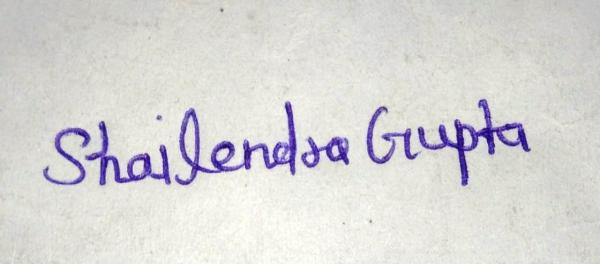 Shailendra Gupta